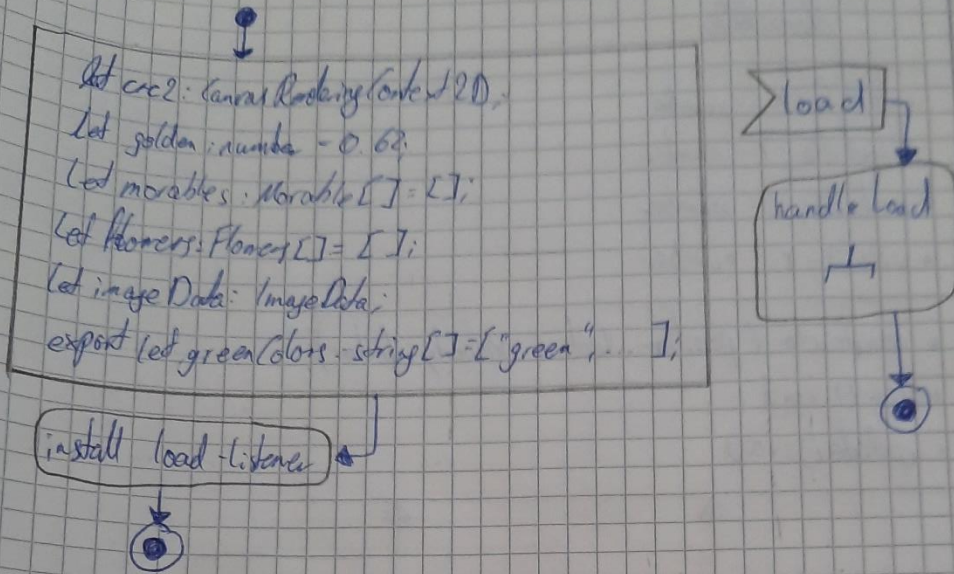 let crc2: CanvasRenderingContext2D;
let golden: number = 0.62;
let movables: Movable[] = [];
let flowers: Flower[] = [ ];
let imageData: ImageData;
export let greenColors: string[] = ["green", . ];
install load-listener
load
handle Load